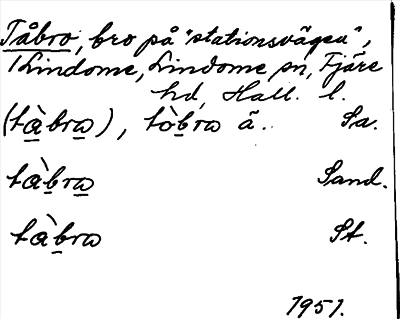 Tåbro, bro på "stationsvägen",
i Lindome, Lindome sn, Fjäre
hd, Hall. l.
(tàbra), tòbra ä. Sa.
tàbra Sand.
tàbra St.
1951.